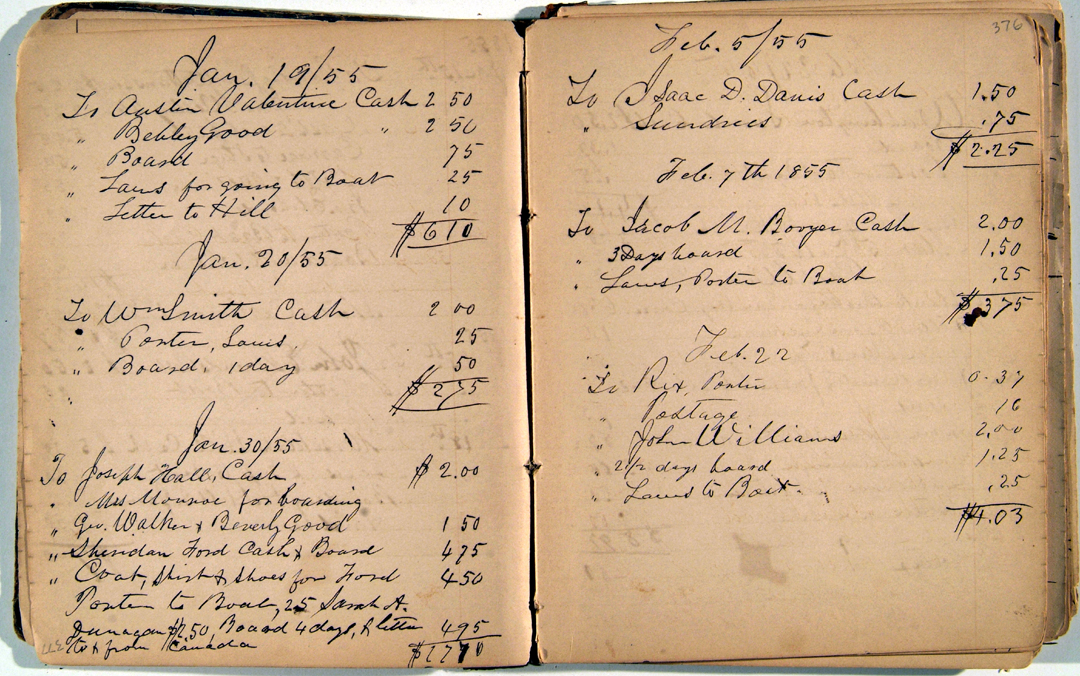 Jan. 19/55
To Austin Valentine Cash 2 50
" Bebley Good " 2 50
" Board 75
" Laws for going to Boat 25
" Letter to Hill 10
$ 6 10
Jan. 20/55
To Wm Smith Cash 2 00
" Porter, Laws. 25
" Board, 1 day 50
"
$ 2 75
Jan. 30/55
To Joseph Hall, Cash $ 2.00
" Mrs Monroe for boarding
" Geo. Walker & Beverly Good 1 50
" Sheridan Ford Cash & Board 4 75
" Coat, Shirt & Shoes for Ford 4 50
Porter to Boat, 25 Sarah A.
Dunagan $2.50, Board 4 days, & letter 4 95
to & from Canada
$17 70
376
Feb. 5/55
To Isaac D. Davis Cash 1.50
" Sundries .75
$ 2.25
Feb. 7th 1855
To Jacob M. Booyer Cash 2.00
" 3 Days board 1.50
" Laws, Porter to Boat .25
$ 3 75
Feb. 22
To Rix, Porter 0.37
" Postage 16
" John Williams 2.00
" 2 1/2 days board 1.25
" Laws to Boat. .25
$4.03